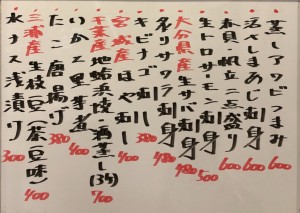 蒸しアワビつまみ 600
活〆しまあじ刺身 600
赤貝・帆立二点盛り 600
生トロサーモン刺身 500
大分県産生サバ刺身 480
メダイ刺身 480
キビナゴ刺し 380
宮城産ほやむし 400
千葉産地蛤浜焼・酒蒸し(3ケ) 700
いかと里芋煮 380
たこ唐揚げ 400
三浦産生枝豆(茶豆味) 400
水ナス浅漬け 300